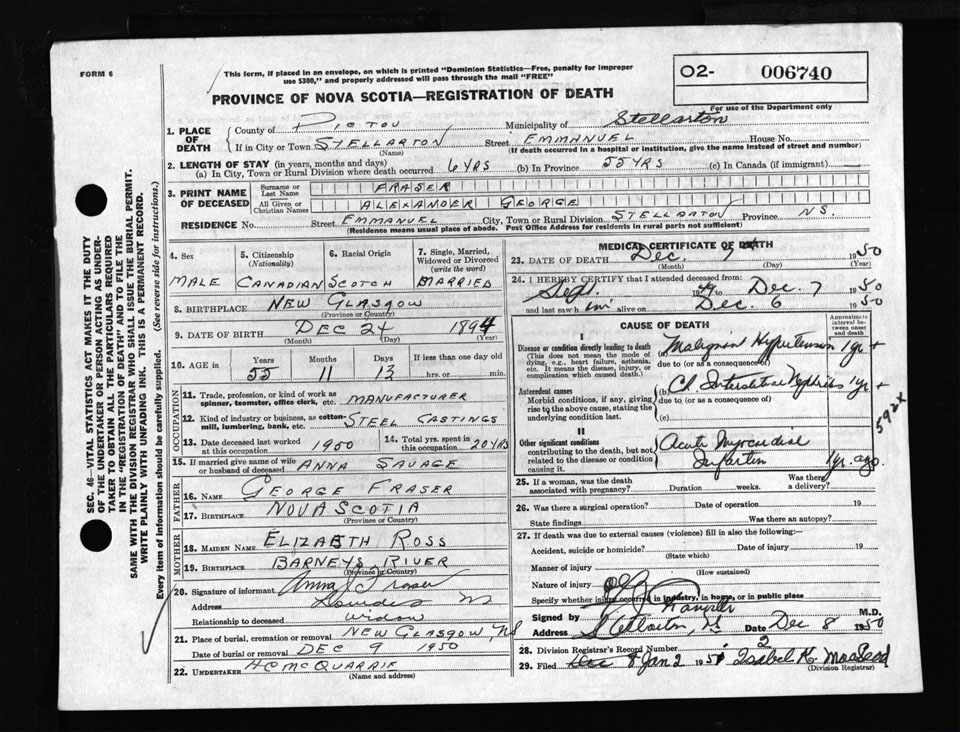 FORM 6
This form, if placed in an envelope, on which is printed "Dominion Statistics—Free, penalty for improper
use $300," and properly addressed will pass through the mail "FREE"
02- 006740
For use of the Department only
PROVINCE OF NOVA SCOTIA—REGISTRATION OF DEATH
1. PLACE OF DEATH
County of PICTOU Municipality of Stellarton
If in City or Town STELLARTON Street EMMANUEL House No.
(Name) (If death occurred in a hospital or institution, give the name instead of street and number)
2. LENGTH OF STAY (in years, months and days)
(a) In City, Town or Rural Division where death occurred 6 YRS (b) In Province 55 YRS (c) In Canada (if immigrant) —
3. PRINT NAME OF DECEASED
Surname or Last Name FRASER
All Given or Christian Names ALEXANDER GEORGE
RESIDENCE No. Street EMMANUEL City, Town or Rural Division STELLARTON Province NS.
(Residence means usual place of abode. Post Office Address for residents in rural parts not sufficient)
4. Sex 5. Citizenship (Nationality) 6. Racial Origin 7. Single, Married, Widowed or Divorced (write the word)
MALE CANADIAN SCOTCH MARRIED
8. BIRTHPLACE NEW GLASGOW
(Province or Country)
9. DATE OF BIRTH DEC 24 1894
(Month) (Day) (Year)
10. AGE in Years Months Days If less than one day old
55 11 13 hrs. or min.
OCCUPATION
11. Trade, profession, or kind of work as
spinner, teamster, office clerk, etc. MANUFACTURER
12. Kind of industry or business, as cotton-
mill, lumbering, bank, etc. STEEL CASTINGS
13. Date deceased last worked
at this occupation 1950
14. Total yrs. spent in
this occupation 20 YRS
15. If married give name of wife
or husband of deceased ANNA SAVAGE
FATHER
16. NAME GEORGE FRASER
17. BIRTHPLACE NOVA SCOTIA
(Province or Country)
MOTHER
18. MAIDEN NAME ELIZABETH ROSS
19. BIRTHPLACE BARNEYS RIVER
(Province or Country)
20. Signature of informant Anna J Fraser
Address Lourdes
Relationship to deceased widow
21. Place of burial, cremation or removal NEW GLASGOW NS
Date of burial or removal DEC 9 1950
22. UNDERTAKER H C MCQUARRIE
(Name and address)
MEDICAL CERTIFICATE OF DEATH
23. DATE OF DEATH Dec. 7th 1950
(Month) (Day) (Year)
24. I HEREBY CERTIFY that I attended deceased from:
19 Dec. 7 1950
and last saw him alive on Dec. 6 1950
CAUSE OF DEATH
Approximate interval between onset and death
I
Disease or condition directly leading to death
(This does not mean the mode of
dying, e.g., heart failure, asthenia,
etc. It means the disease, injury, or
complication which caused death.)
(a) Malignan Hypertension 1 yr +
due to (or as a consequence of)
Antecedent causes
Morbid conditions, if any, giving
rise to the above cause, stating the
underlying condition last.
(b) Ch Interstitial Nephritis 1 yr +
due to (or as a consequence of)
(c)
592X
II
Other significant conditions
contributing to the death, but not
related to the disease or condition
causing it.
Acute Myocardial
Infarction 1 yr. ago.
25. If a woman, was the death
associated with pregnancy? Duration weeks. Was there
a delivery?
26. Was there a surgical operation? Date of operation 19
State findings Was there an autopsy?
27. If death was due to external causes (violence) fill in also the following:
Accident, suicide or homicide? Date of injury 19
(State which)
Manner of injury
(How sustained)
Nature of injury
Specify whether injury occurred in industry, in home, or in public place
Signed by M.D.
Address Stellarton, NS Date Dec 8 1950
28. Division Registrar's Record Number 2
29. Filed Dec 8 Jan 2 1951 Isabel K. MacLeod
(Division Registrar)
SEC. 46—VITAL STATISTICS ACT MAKES IT THE DUTY
OF THE UNDERTAKER OR PERSON ACTING AS UNDER-
TAKER TO OBTAIN ALL THE PARTICULARS REQUIRED
IN THE "REGISTRATION OF DEATH" AND TO FILE THE
SAME WITH THE DIVISION REGISTRAR WHO SHALL ISSUE THE BURIAL PERMIT.
WRITE PLAINLY WITH UNFADING INK. THIS IS A PERMANENT RECORD.
Every item of information should be carefully supplied. (See reverse side for instructions.)